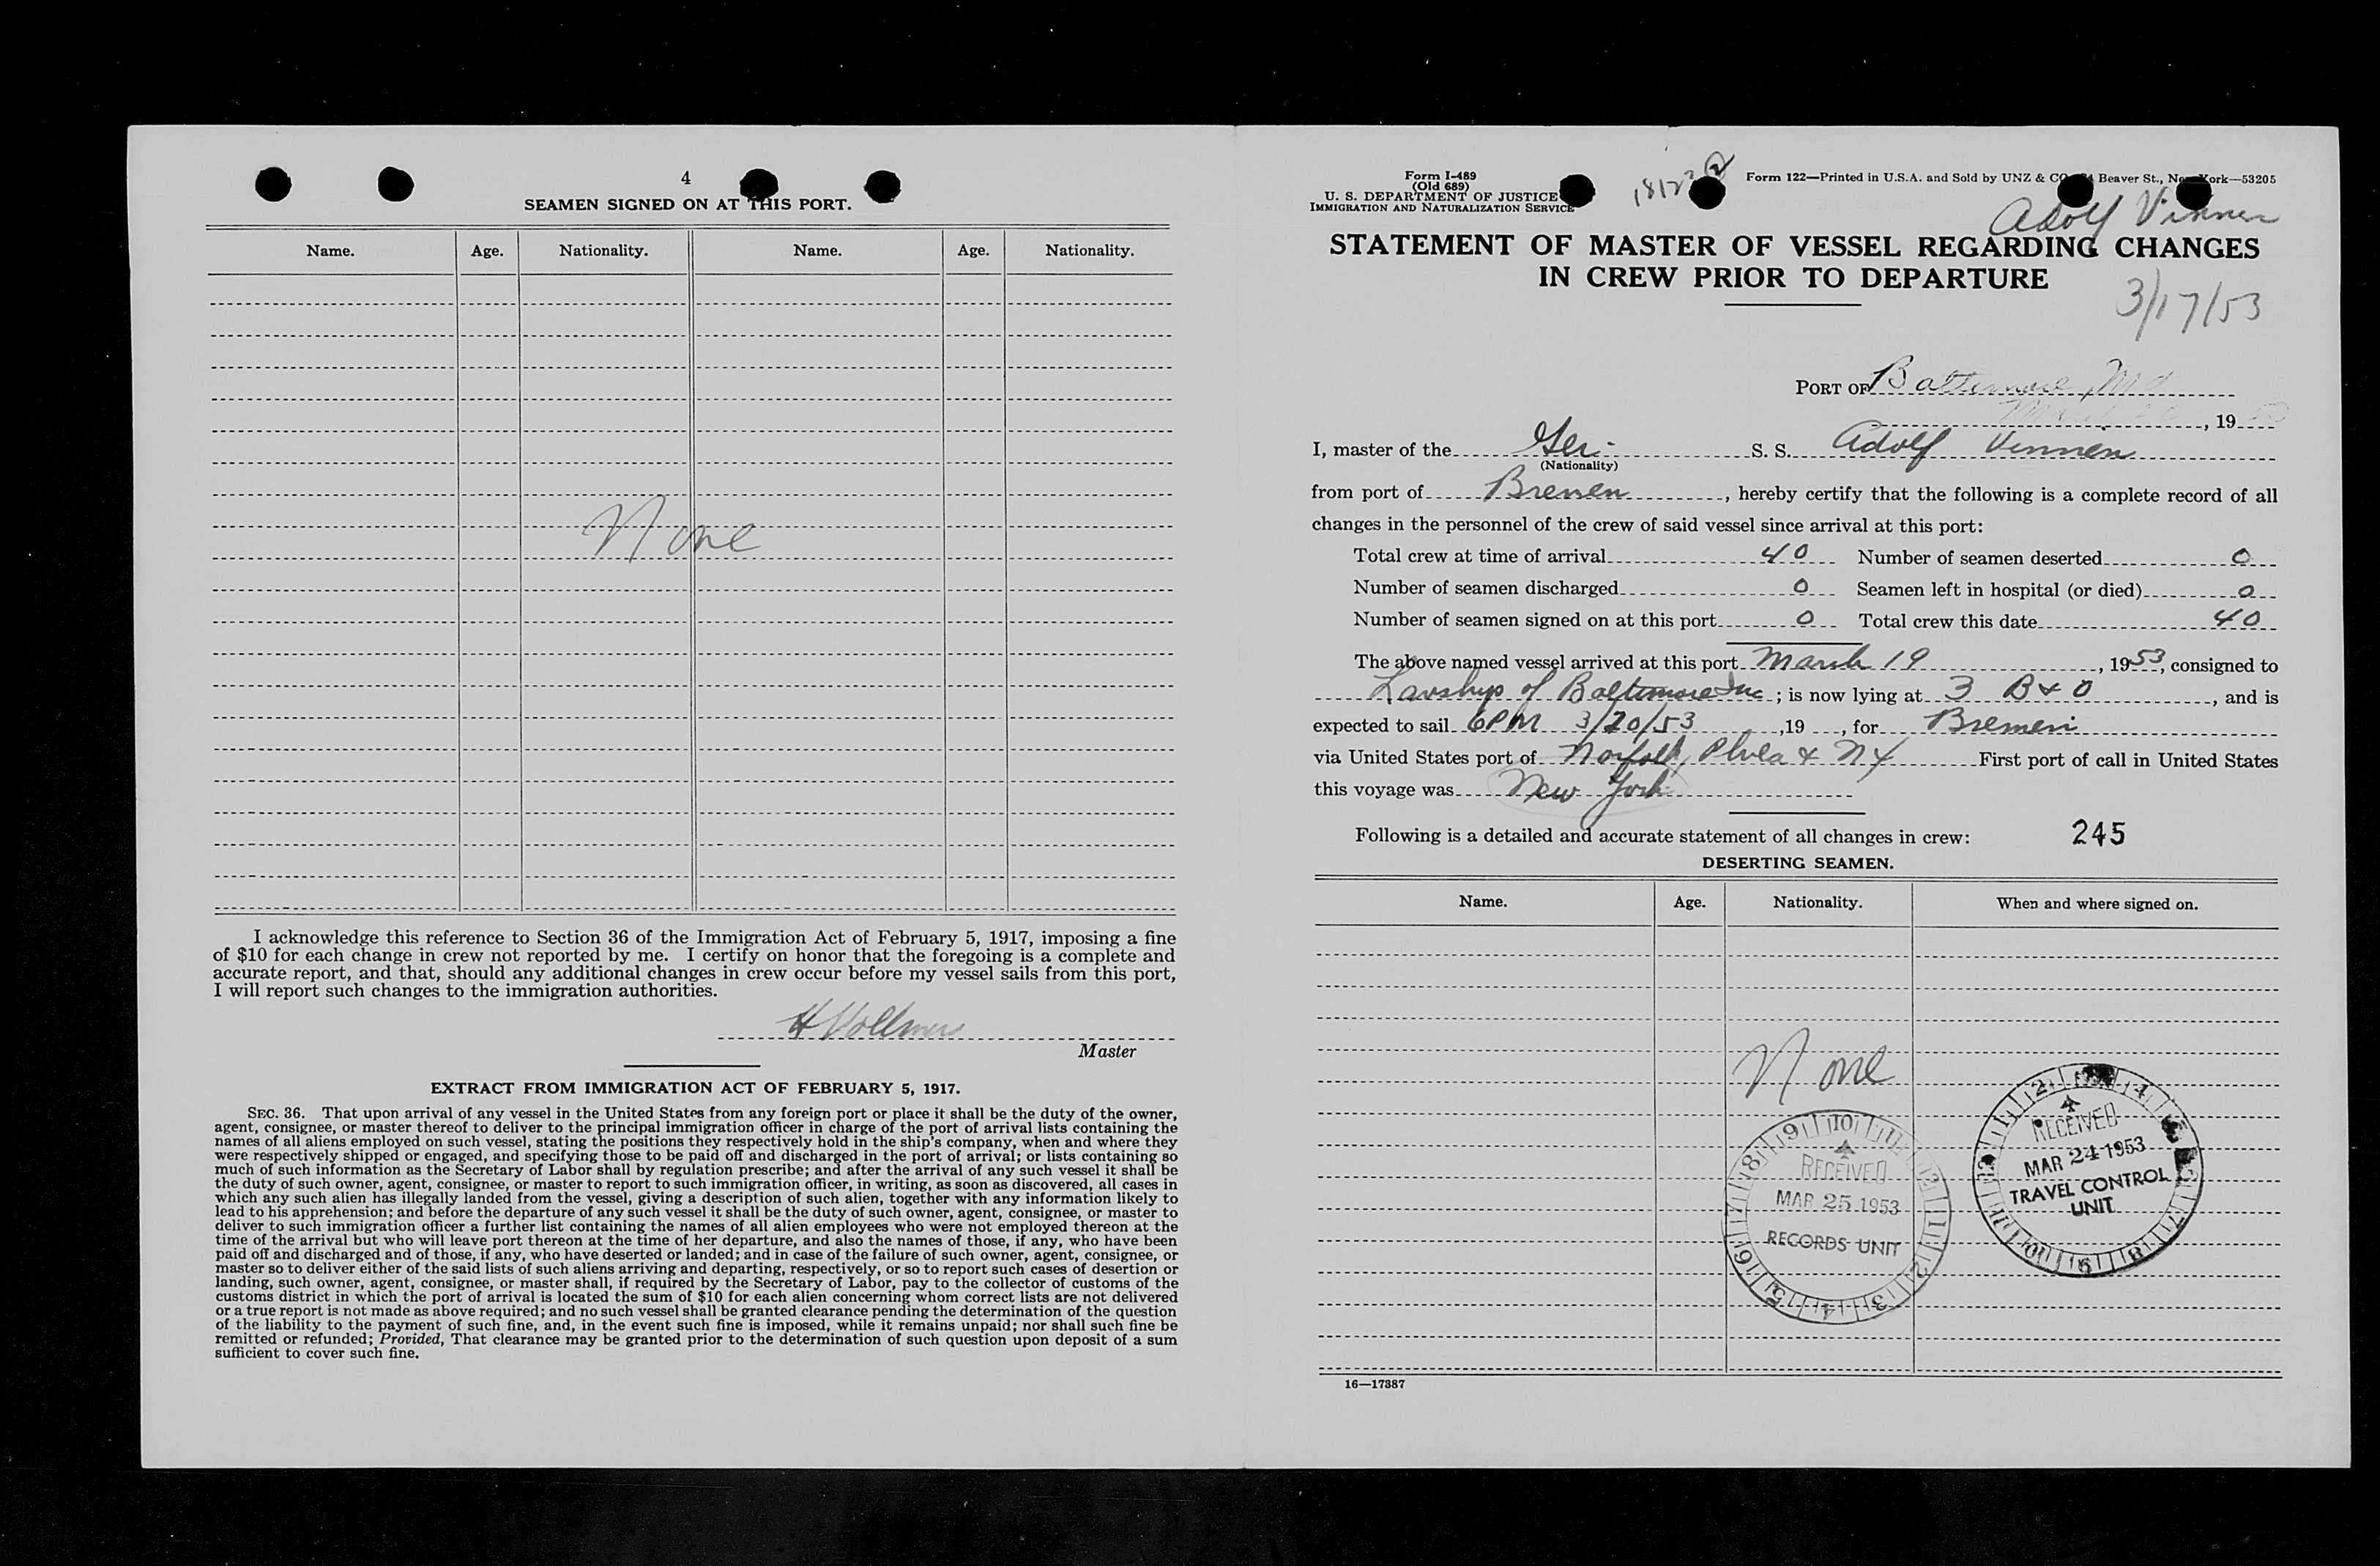 4
SEAMEN SIGNED ON AT THIS PORT.
Name. Age. Nationality. Name. Age. Nationality.
None
I acknowledge this reference to Section 36 of the Immigration Act of February 5, 1917, imposing a fine
of $10 for each change in crew not reported by me. I certify on honor that the foregoing is a complete and
accurate report, and that, should any additional changes in crew occur before my vessel sails from this port,
I will report such changes to the immigration authorities.
H Vollmers
Master
EXTRACT FROM IMMIGRATION ACT OF FEBRUARY 5, 1917.
SEC. 36. That upon arrival of any vessel in the United States from any foreign port or place it shall be the duty of the owner,
agent, consignee, or master thereof to deliver to the principal immigration officer in charge of the port of arrival lists containing the
names of all aliens employed on such vessel, stating the positions they respectively hold in the ship's company, when and where they
were respectively shipped or engaged, and specifying those to be paid off and discharged in the port of arrival; or lists containing so
much of such information as the Secretary of Labor shall by regulation prescribe; and after the arrival of any such vessel it shall be
the duty of such owner, agent, consignee, or master to report to such immigration officer, in writing, as soon as discovered, all cases in
which any such alien has illegally landed from the vessel, giving a description of such alien, together with any information likely to
lead to his apprehension; and before the departure of any such vessel it shall be the duty of such owner, agent, consignee, or master to
deliver to such immigration officer a further list containing the names of all alien employees who were not employed thereon at the
time of the arrival but who will leave port thereon at the time of her departure, and also the names of those, if any, who have been
paid off and discharged and of those, if any, who have deserted or landed; and in case of the failure of such owner, agent, consignee, or
master so to deliver either of the said lists of such aliens arriving and departing, respectively, or so to report such cases of desertion or
landing, such owner, agent, consignee, or master shall, if required by the Secretary of Labor, pay to the collector of customs of the
customs district in which the port of arrival is located the sum of $10 for each alien concerning whom correct lists are not delivered
or a true report is not made as above required; and no such vessel shall be granted clearance pending the determination of the question
of the liability to the payment of such fine, and, in the event such fine is imposed, while it remains unpaid; nor shall such fine be
remitted or refunded; Provided, That clearance may be granted prior to the determination of such question upon deposit of a sum
sufficient to cover such fine.
Form I-489
(Old 689)
U. S. DEPARTMENT OF JUSTICE
IMMIGRATION AND NATURALIZATION SERVICE
Form 122—Printed in U.S.A. and Sold by UNZ & CO Beaver St., New York—53205
Adolf Vinnen
STATEMENT OF MASTER OF VESSEL REGARDING CHANGES
IN CREW PRIOR TO DEPARTURE
3/17/53
PORT OF Baltimore, Md
, 19
I, master of the Ger. S. S. Adolf Vinnen
(Nationality)
from port of Bremen, hereby certify that the following is a complete record of all
changes in the personnel of the crew of said vessel since arrival at this port:
Total crew at time of arrival 40 Number of seamen deserted 0
Number of seamen discharged 0 Seamen left in hospital (or died) 0
Number of seamen signed on at this port 0 Total crew this date 40
The above named vessel arrived at this port March 19, 1953, consigned to
of Baltimore Inc; is now lying at 3 B & O, and is
expected to sail 6PM 3/20/53, 19 , for Bremen
via United States port of Norfolk, Phila & NY First port of call in United States
this voyage was New York
Following is a detailed and accurate statement of all changes in crew: 245
DESERTING SEAMEN.
Name. Age. Nationality. When and where signed on.
None
RECEIVED
MAR 25 1953
RECORDS UNIT
RECEIVED
MAR 24 1953
TRAVEL CONTROL
UNIT
16—17387